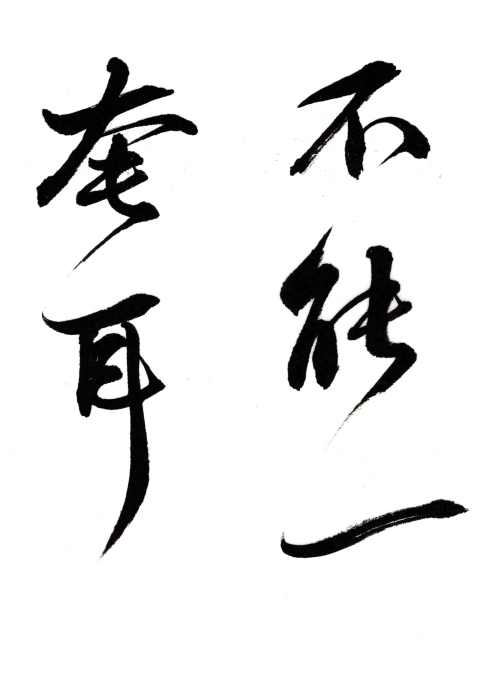 不能一
耳